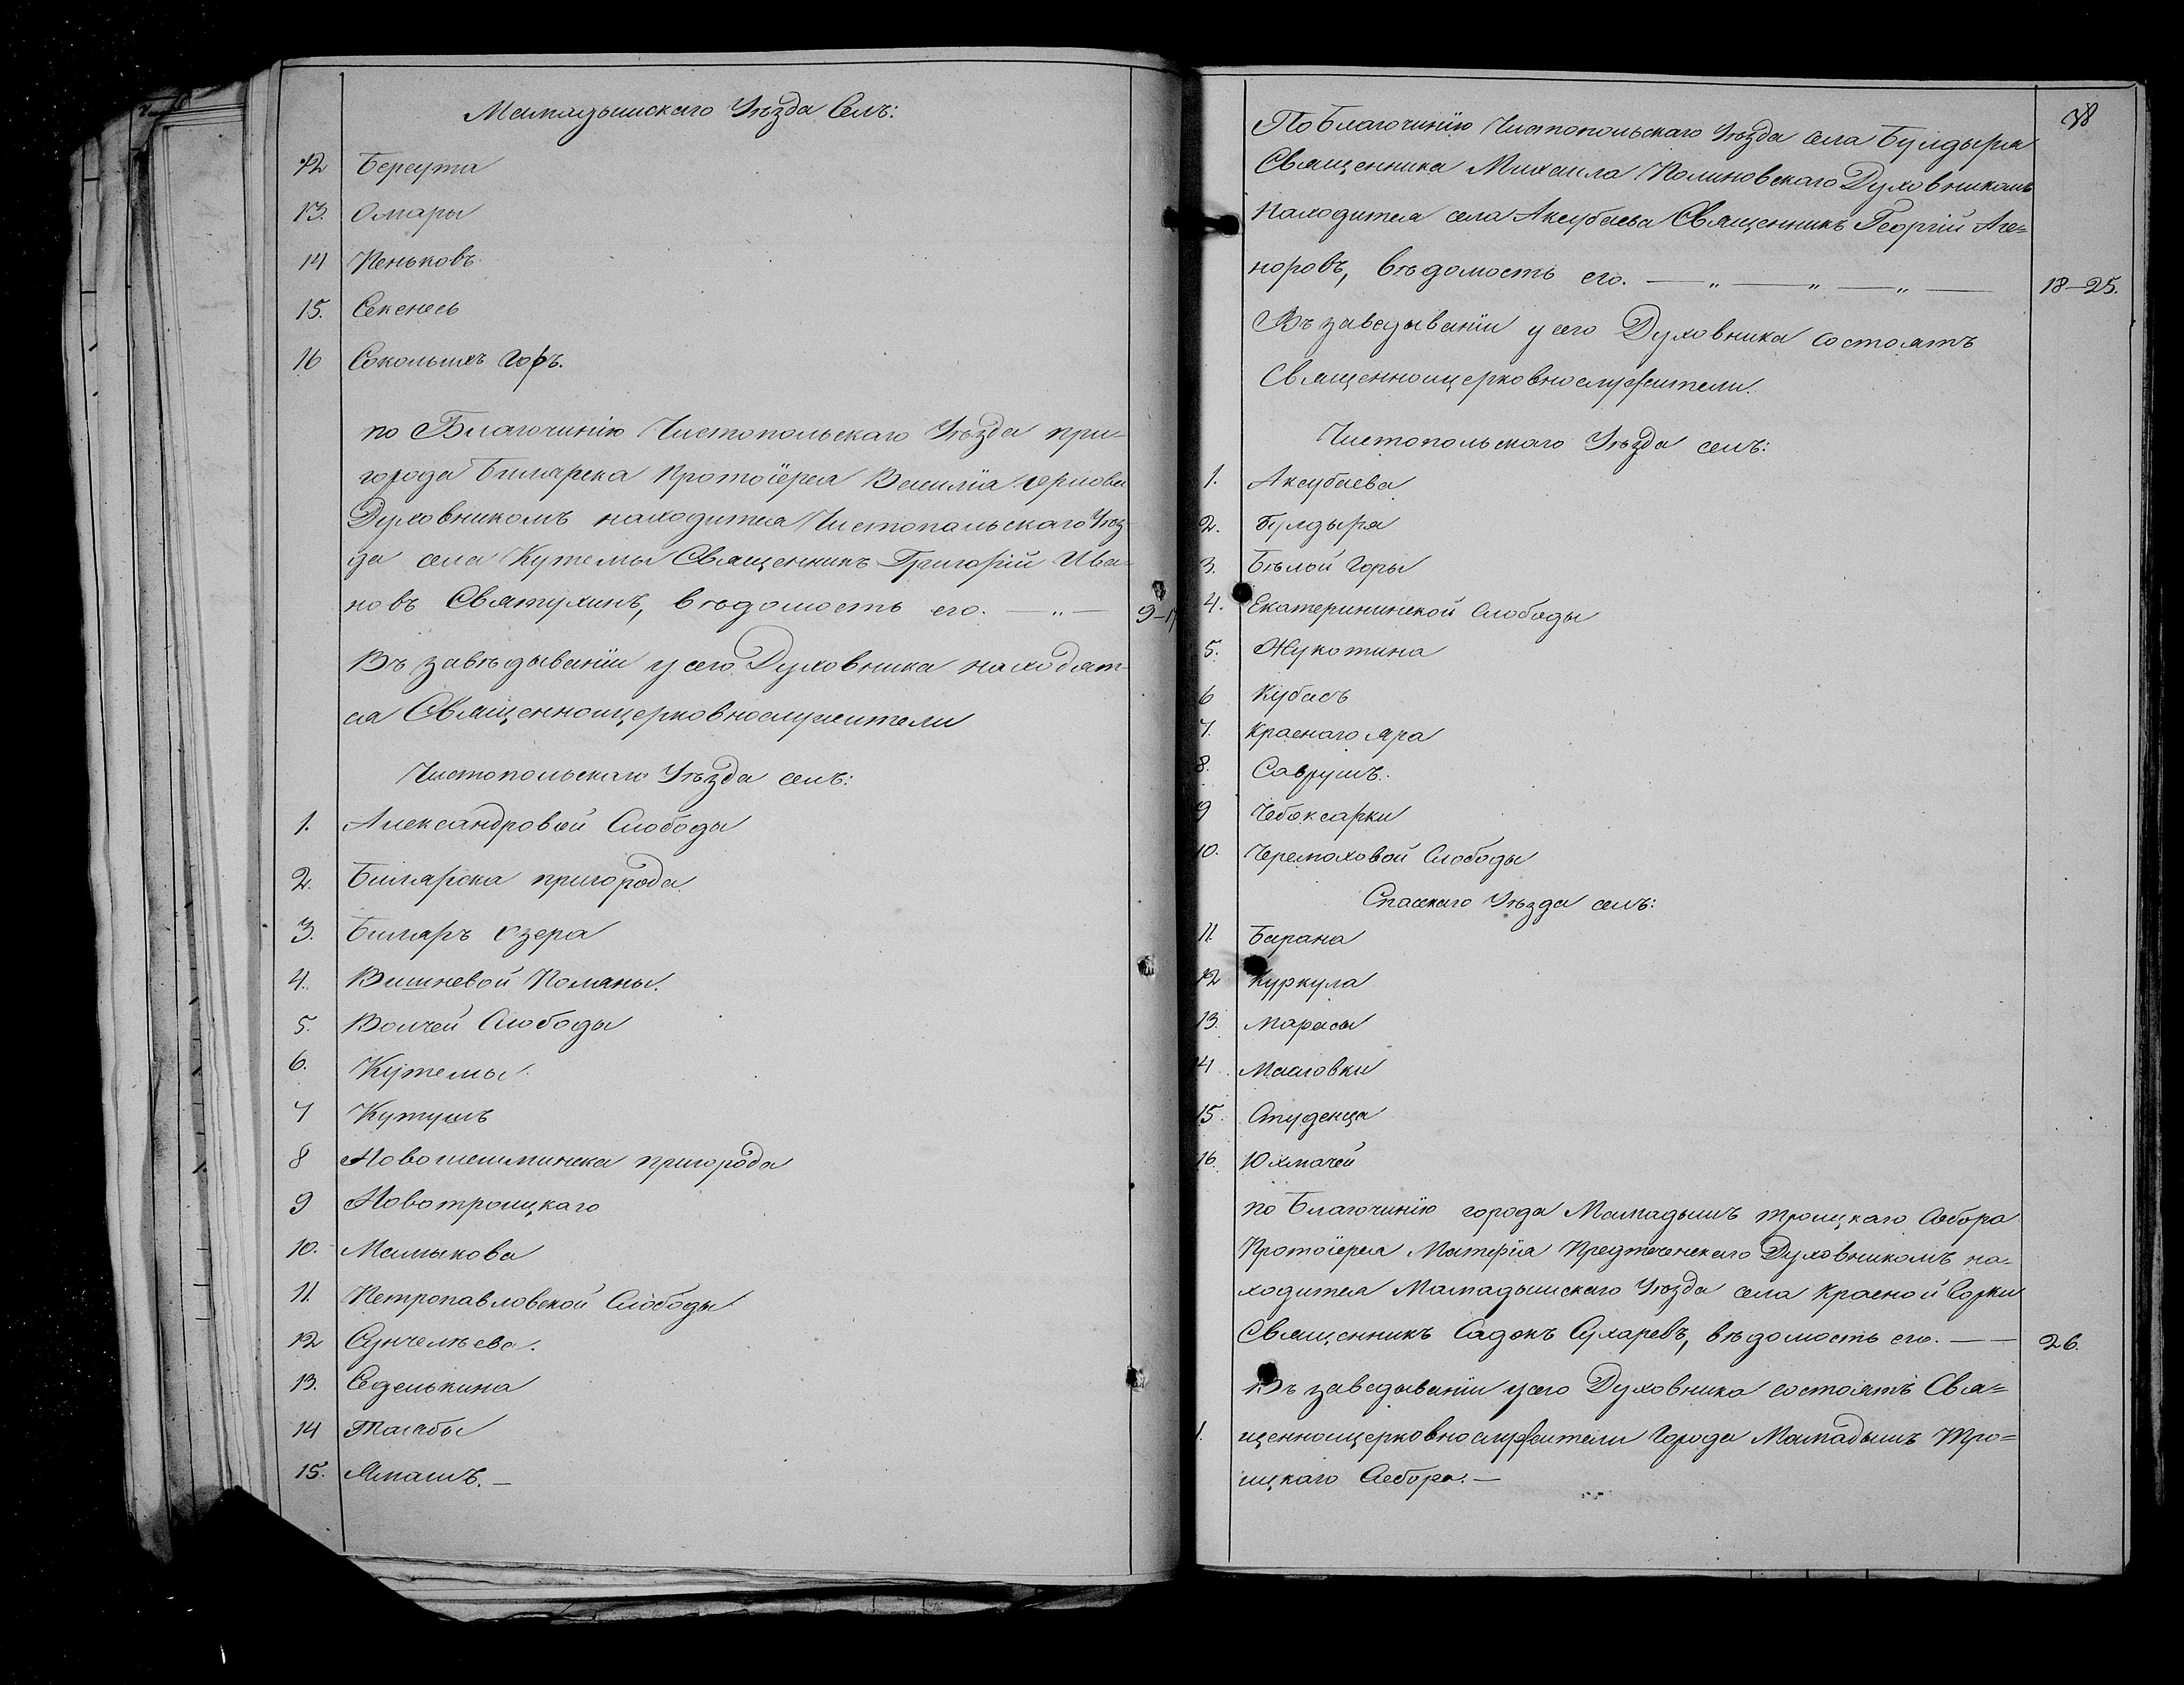 Мамадышскаго Уѣзда Селъ:
12 Берсута
13. Омары
14 Пеньковъ
15. Секенесь
16 Сокольихъ Горъ.
по Благочинію Чистопольскаго Уѣзда при-
города Билярска Протоіерея Василія
Духовникомъ находится Чистопольскаго Уѣз-
да села Кутемы Священникъ Григорій Ива-
новъ Святухинъ, вѣдомость его. — „ —
9-17
Въ завѣдываніи у сего Духовника находят-
ся Священноцерковнослужители
Чистопольскаго Уѣзда селъ:
1. Александровой Слободы
2. Билярска пригорода
3. Биляръ Озера
4. Вишневой Поляны.
5. Волчей Слободы
6. Кутемы
7 Кутушъ
8 Новошешминска пригорода
9 Новотроицкаго
10. Мамыкова
11. Петропавловской Слободы
12 Сунчелѣева.
13. Седелькина
14 Талкбы
15. Ямашъ. —
38
По Благочинію Чистопольскаго Уѣзда села Булдыря
Священника Михаила Полиновскаго Духовникомъ
Находится села Аксубаева Священникъ Георгій Аге=
норовъ, вѣдомость его. — „ — „ — „ — 18-25.
Въ заведываніи у сего Духовника состоятъ
Священноицерковнослужители.
Чистопольскаго Уѣзда селъ:
1. Аксубаева
2. Булдыря
3. Бѣлой Горы
4. Екатерининской Слободы
5. Жукотина
6 Кубасъ
7. Краснаго Яра
8. Саврушъ.
9 Чебоксарки
10. Черемоховой Слободы
Спасскаго Уѣзда селъ:
11 Барана
12 Куркула
13. Марасы
14 Масловки
15. Студенца
16. Юхмачей
по Благочинію города Мамадышъ Троицкаго Собора
Протоіерея Матфія Предтеченскаго Духовникомъ на-
ходится Мамадышскаго Уѣзда села Красной Горки
Священникъ Садокъ Сухаревъ, вѣдомость его. — — 26.
Въ заведываніи у сего Духовника состоятъ Свя=
1. щенноицерковнослужители Города Мамадышъ Тро=
ицкаго Собора. —